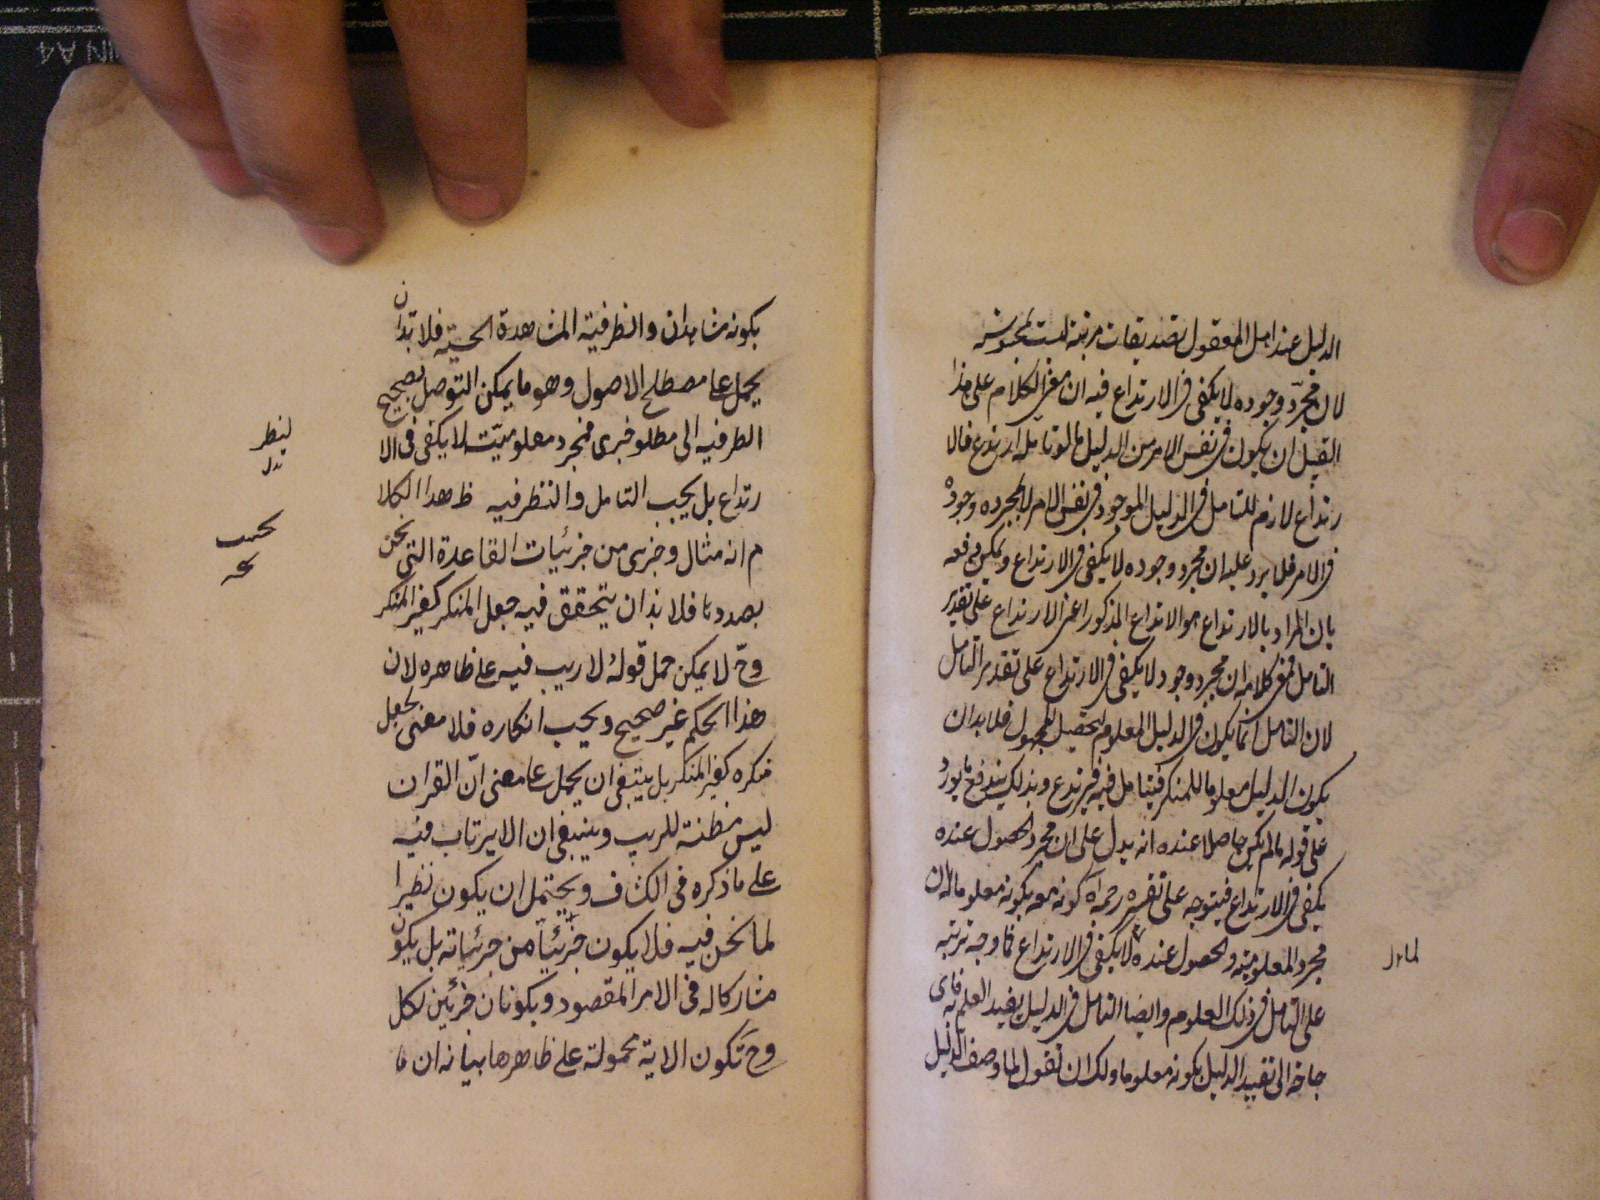 الدليل عند اهل المعقول تصديقات مرتبة ليست
لان مجرد وجوده لا يكفى فى الارتداع فيه ان معنى الكلام على هذا
القيل ان يكون فى نفس الامر من الدليل ما لو تامله ارتدع فالا
رتداع لازم للتامل فى الدليل الموجود فى نفس الامر لا لمجرده وجوده
فى الامر فلا يرد عليه ان مجرد وجوده لا يكفى فى الارتداع ويمكن دفعه
بان المراد بالارتداع هو الارتداع المذكور اعنى الارتداع على تقدير
التامل فمعنى كلامه ان مجرد وجوده لا يكفى فى الارتداع على تقدير التامل
لان التامل انما يكون فى الدليل المعلوم لتحصيل المجهول فلا بد ان
يكون الدليل معلوما للمنكر فيتامل فيه فيرتدع وبذلك يندفع ما يورد
على قوله ما لم يكن حاصلا عنده انه يدل على ان مجرد الحصول عنده
يكفى فى الارتداع فيتوجه على تفسيره رحمه الله كونه معه بكونه معلوما لان
مجرد المعلومية والحصول عنده لا يكفى فى الارتداع فما وجه ترتبه
على التامل فى ذلك المعلوم وايضا التامل فى الدليل يفيد العلم به فاى
حاجة الى تقييد الدليل بكونه معلوما ولك ان تقول لما وصف الدليل
بكونه مشاهدا والنظر فيه المشاهدة الحسية فلا بد ان
يحمل على مصطلح الاصول وهو ما يمكن التوصل بصحيح
النظر فيه الى مطلوب خبرى فمجرد معلوميته لا يكفى فى الا
رتداع بل يجب التامل والنظر فيه ظ هذا الكلا
م انه مثال وجزئى من جزئيات القاعدة التى نحن
بصددها فلا بد ان يتحقق فيه جعل المنكر كغير المنكر
وح لا يمكن حمل قوله لا ريب فيه على ظاهره لان
هذا الحكم غير صحيح ويجب انكاره فلا معنى لجعل
منكره كغير المنكر بل ينبغى ان يحمل على معنى ان القران
ليس مظنة للريب وينبغى ان لا يرتاب فيه
على ما ذكره فى الكشاف ويحتمل ان يكون نظيرا
لما نحن فيه فلا يكون جزئيا من جزئياته بل يكون
مشاركا له فى الامر المقصود ويكونان جزئين لكل
وح تكون الاية محمولة على ظاهرها بيانه ان ما